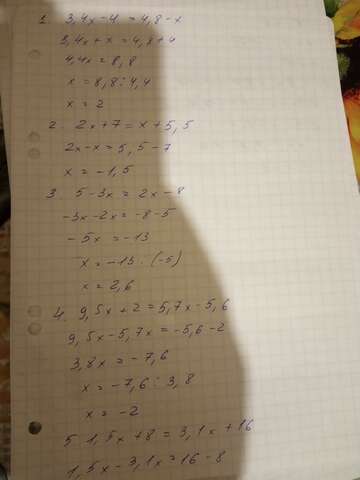 1. 3,4x-4 = 4,8-x
3,4x+x = 4,8+4
4,4x = 8,8
x = 8,8:4,4
x = 2
2. 2x+7 = x+5,5
2x-x = 5,5-7
x = -1,5
3. 5-3x = 2x-8
-3x-2x = -8-5
-5x = -13
x = -13:(-5)
x = 2,6
4. 9,5x+2 = 5,7x-5,6
9,5x-5,7x = -5,6-2
3,8x = -7,6
x = -7,6:3,8
x = -2
5. 1,5x+8 = 3,1x+16
1,5x-3,1x = 16-8